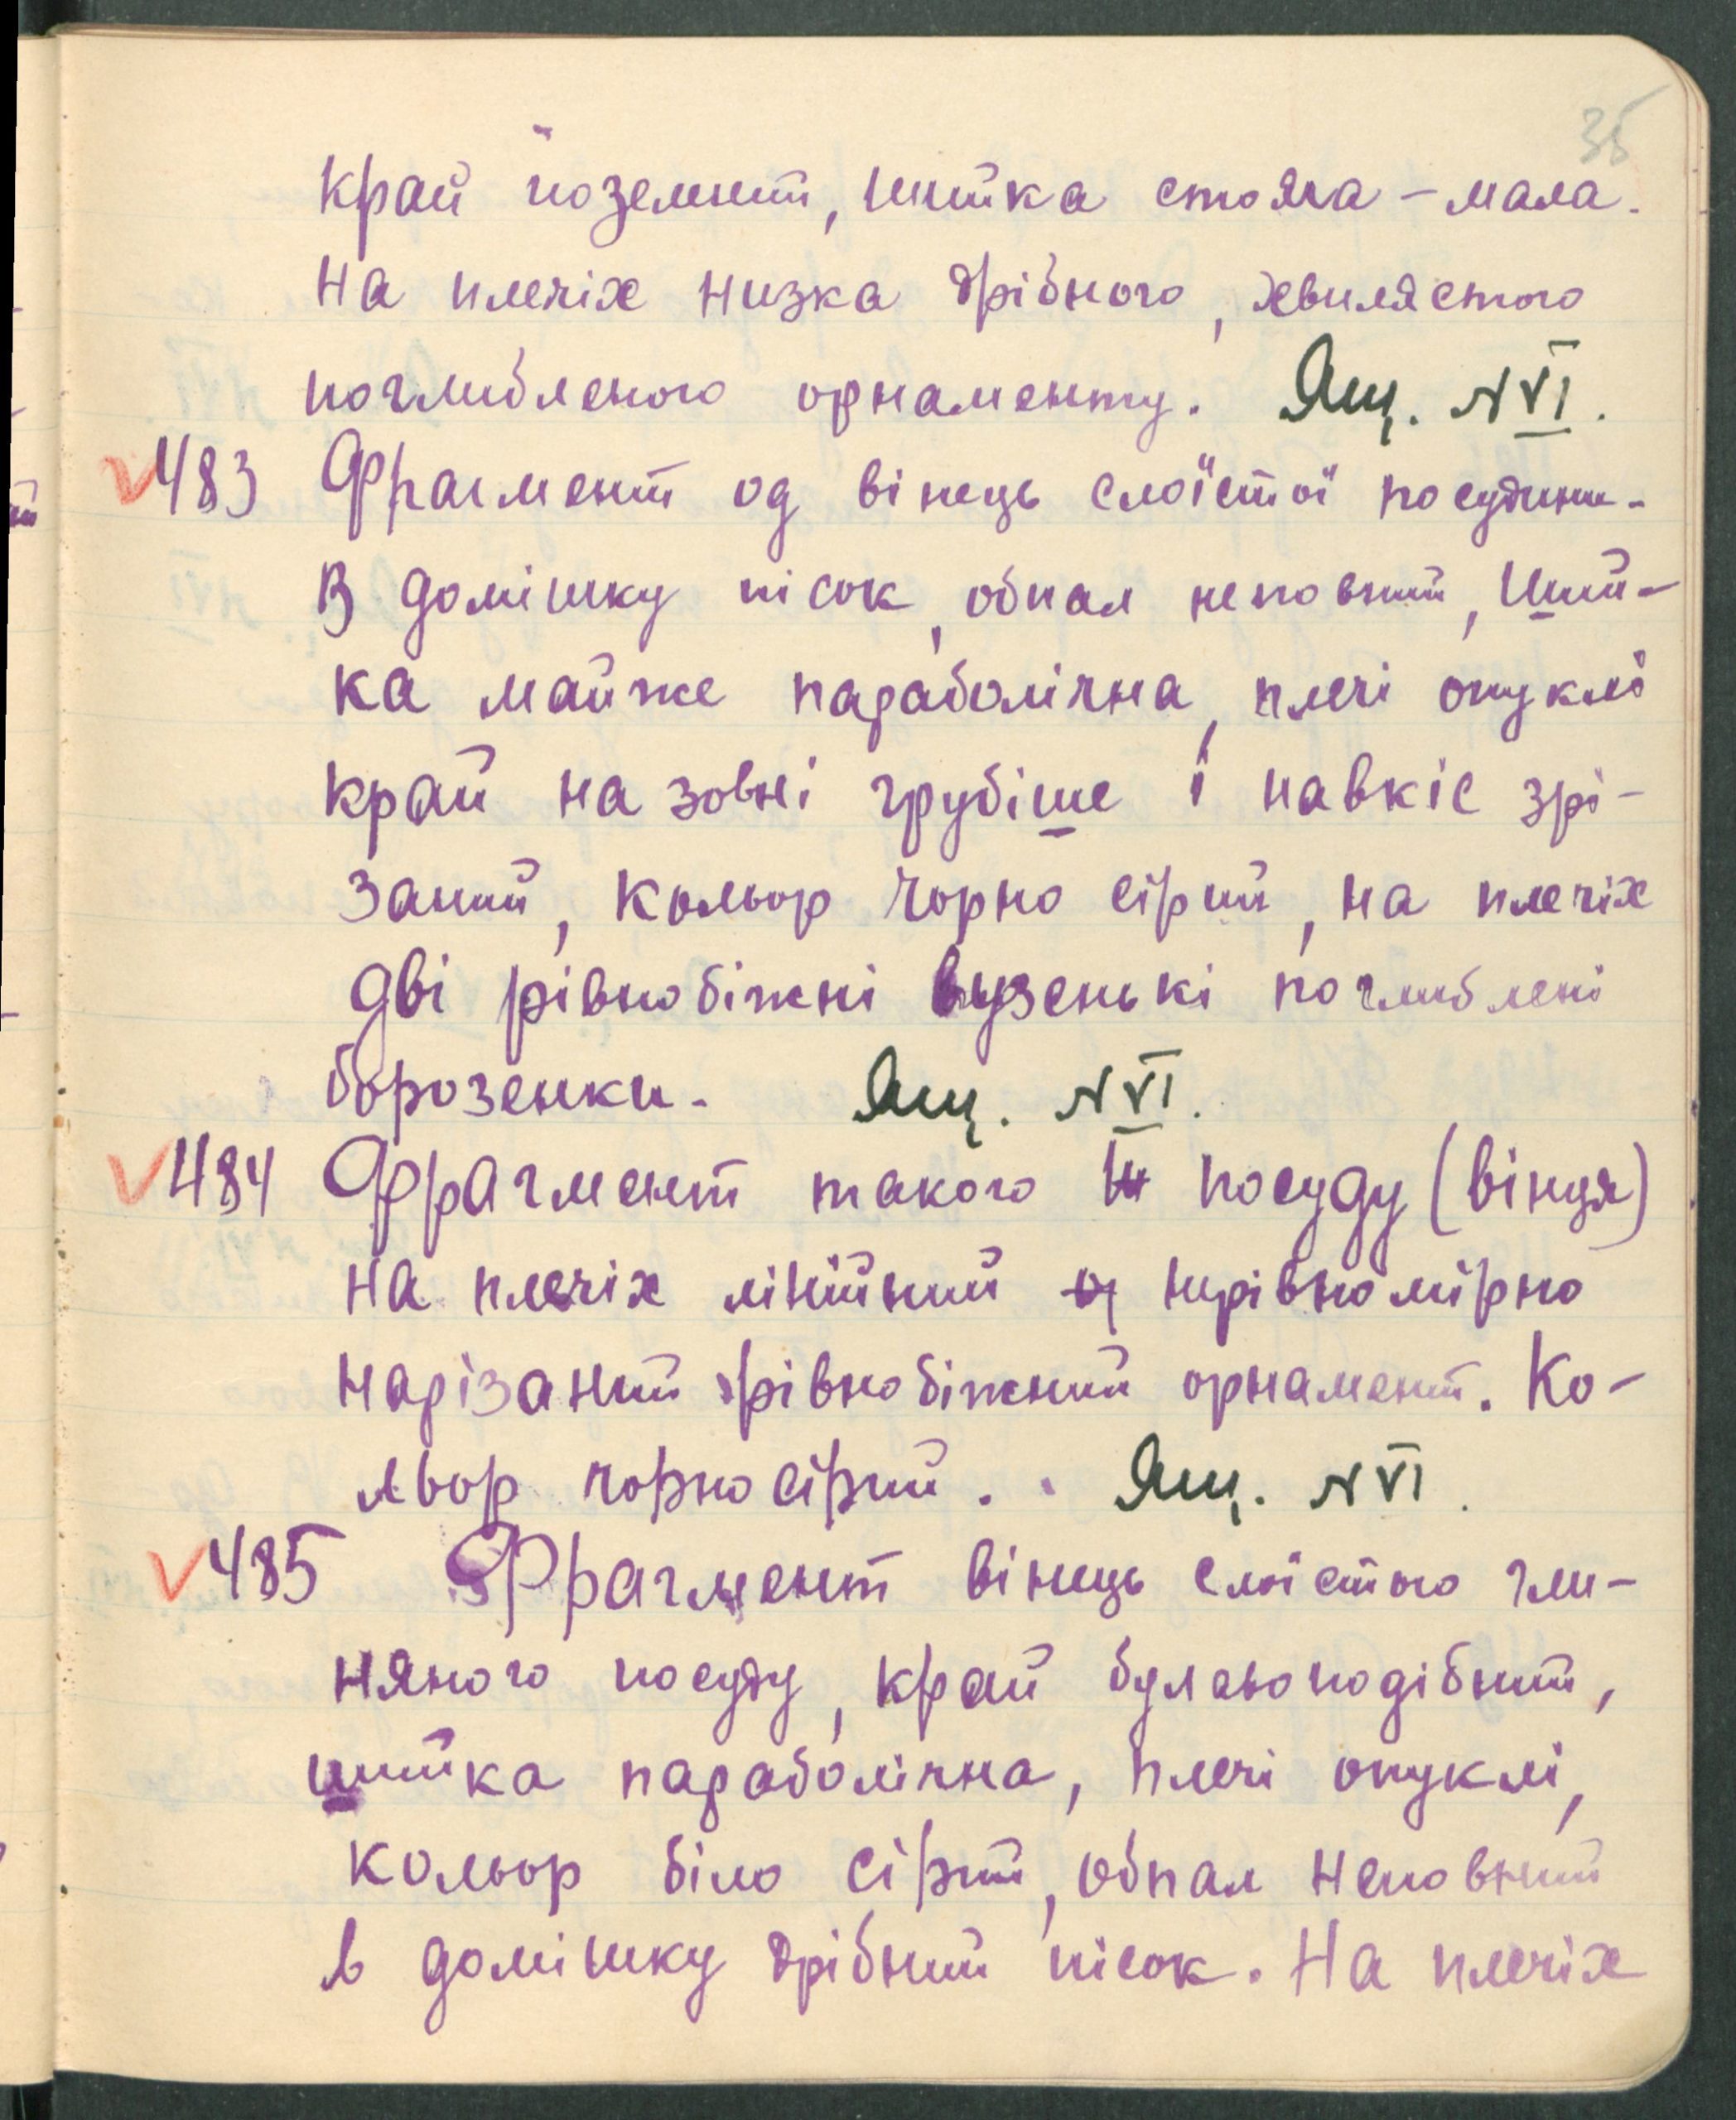 35
край поземний, шийка стояча – мала.
На плечіх низка дрібного, хвилястого
поглибленого орнаменту. Ящ. N VI.
483 Фрагмент од вінець слоїстої посудини.
В домішку пісок, обпал неповний, Ший-
ка майже параболічна, плечі опуклі
край на зовні грубіше і навкіс зрі-
заний, Кольор чорно сірий, на плечіх
дві рівнобіжні вузенькі поглиблені
борозенки. Ящ. N VI.
484 Фрагмент такого ж посуду (вінця)
на плечіх лінійний нерівномірно
нарізаний рівнобіжний орнамент. Ко-
льор чорносірий. Ящ. N VI.
485 Фрагмент вінець слоїстого гли-
няного посуду, край булавоподібний,
шийка параболічна, плечі опуклі,
кольор біло сірий, обпал неповний
в домішку дрібний пісок. На плечіх